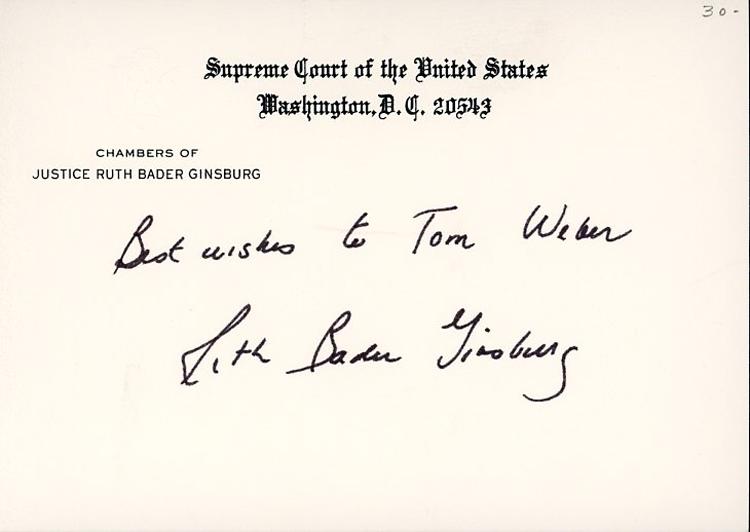 30-
Supreme Court of the United States
Washington, D. C. 20543
CHAMBERS OF
JUSTICE RUTH BADER GINSBURG
Best wishes to Tom Weber
Ruth Bader Ginsburg